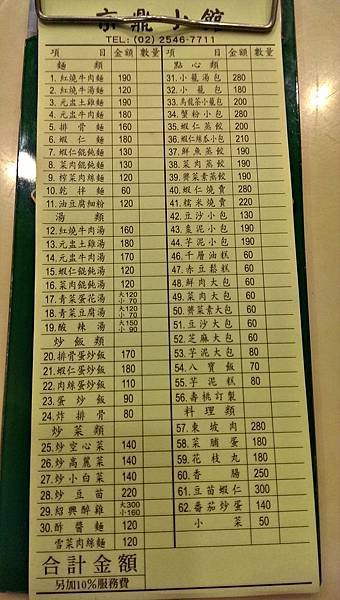 京鼎小館
TEL: (02) 2546-7711
項 目 金額 數量
麵 類
1. 紅燒牛肉麵 190
2. 紅燒牛湯麵 120
3. 元盅土雞麵 190
4. 元盅牛肉麵 180
5. 排骨麵 160
6. 蝦仁麵 180
7. 蝦仁餛飩麵 130
8. 菜肉餛飩麵 130
9. 榨菜肉絲麵 120
10. 乾拌麵 60
11. 油豆腐細粉 120
湯 類
12. 紅燒牛肉湯 160
13. 元盅土雞湯 180
14. 元盅牛肉湯 170
15. 蝦仁餛飩湯 120
16. 菜肉餛飩湯 120
17. 青菜蛋花湯 大120 小 70
18. 青菜豆腐湯 大120 小 70
19. 酸辣湯 大150 小 90
炒 飯 類
20. 排骨蛋炒飯 170
21. 蝦仁蛋炒飯 180
22. 肉絲蛋炒飯 110
23. 蛋炒飯 90
24. 炸排骨 80
炒 菜 類
25. 炒空心菜 140
26. 炒高麗菜 140
27. 炒小白菜 140
28. 炒豆苗 220
29. 紹興醉雞 大300 小160
30. 酢醬麵 120
雪菜肉絲麵 120
合計金額
另加10%服務費
項 目 金額 數量
點 心 類
31. 小籠湯包 280
32. 小籠包 180
33. 烏龍茶小籠包 200
34. 蟹粉小包 280
35. 蝦仁蒸餃 200
36. 蝦仁絲瓜小包 210
37. 鮮魚蒸餃 190
38. 菜肉蒸餃 190
39. 薺菜素蒸餃 190
40. 蝦仁燒賣 280
41. 糯米燒賣 220
42. 豆沙小包 130
43. 棗泥小包 190
44. 芋泥小包 190
46. 千層油糕 60
47. 赤豆鬆糕 60
48. 鮮肉大包 60
49. 菜肉大包 60
50. 薺菜素大包 60
51. 豆沙大包 60
52. 芝麻大包 60
53. 芋泥大包 80
54. 八寶飯 70
55. 芋泥糕 80
56. 壽桃訂製
料 理 類
57. 東坡肉 280
58. 菜脯蛋 180
59. 花枝丸 180
60. 香腸 250
61. 豆苗蝦仁 300
62. 番茄炒蛋 140
小菜 50